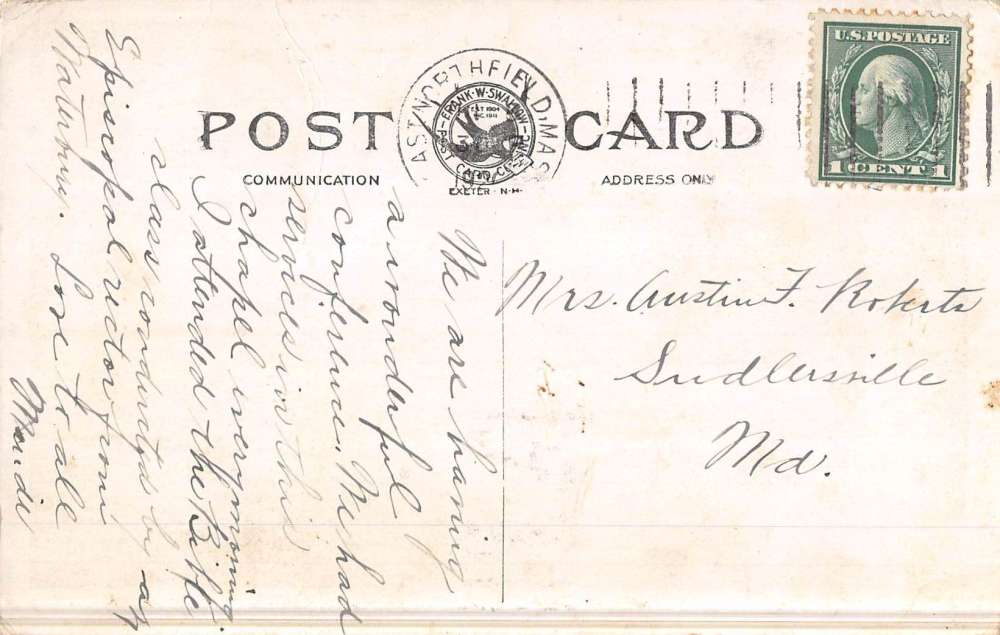 POST CARD
COMMUNICATION
ADDRESS ONLY
FRANK·W·SWALLOW
POST CARD CO. INC.
EST 1904
INC. 1911
EXETER · N·H·
EAST NORTHFIELD, MASS
U.S. POSTAGE
1 CENT 1
We are having
a wonderful
conference. We had
services in this
chapel every morning.
I attended the Bible
class conducted by an
Episcopal rector from
Love to all
Mrs. Austin F. Roberts
Sudlersville
Md.